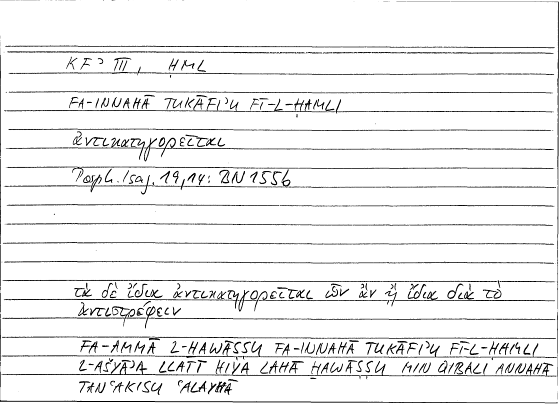 KFʾ III, ḤML
FA-INNAHĀ TUKĀFIʾU FĪ-L-ḤAMLI
ἀντικατηγορεῖται
Porph. Isag. 19,14: BN 155b
τὰ δὲ ἴδια ἀντικατηγορεῖται ὧν ἂν ᾖ ἴδια διὰ τὸ
ἀντιστρέφειν
FA-AMMĀ L-ḪAWĀṢṢU FA-INNAHĀ TUKĀFIʾU FĪ-L-ḤAMLI
L-AŠYĀʾA LLATĪ HIYA LAHĀ ḪAWĀṢṢU MIN QIBALI ANNAHĀ
TANʿAKISU ʿALAYHĀ